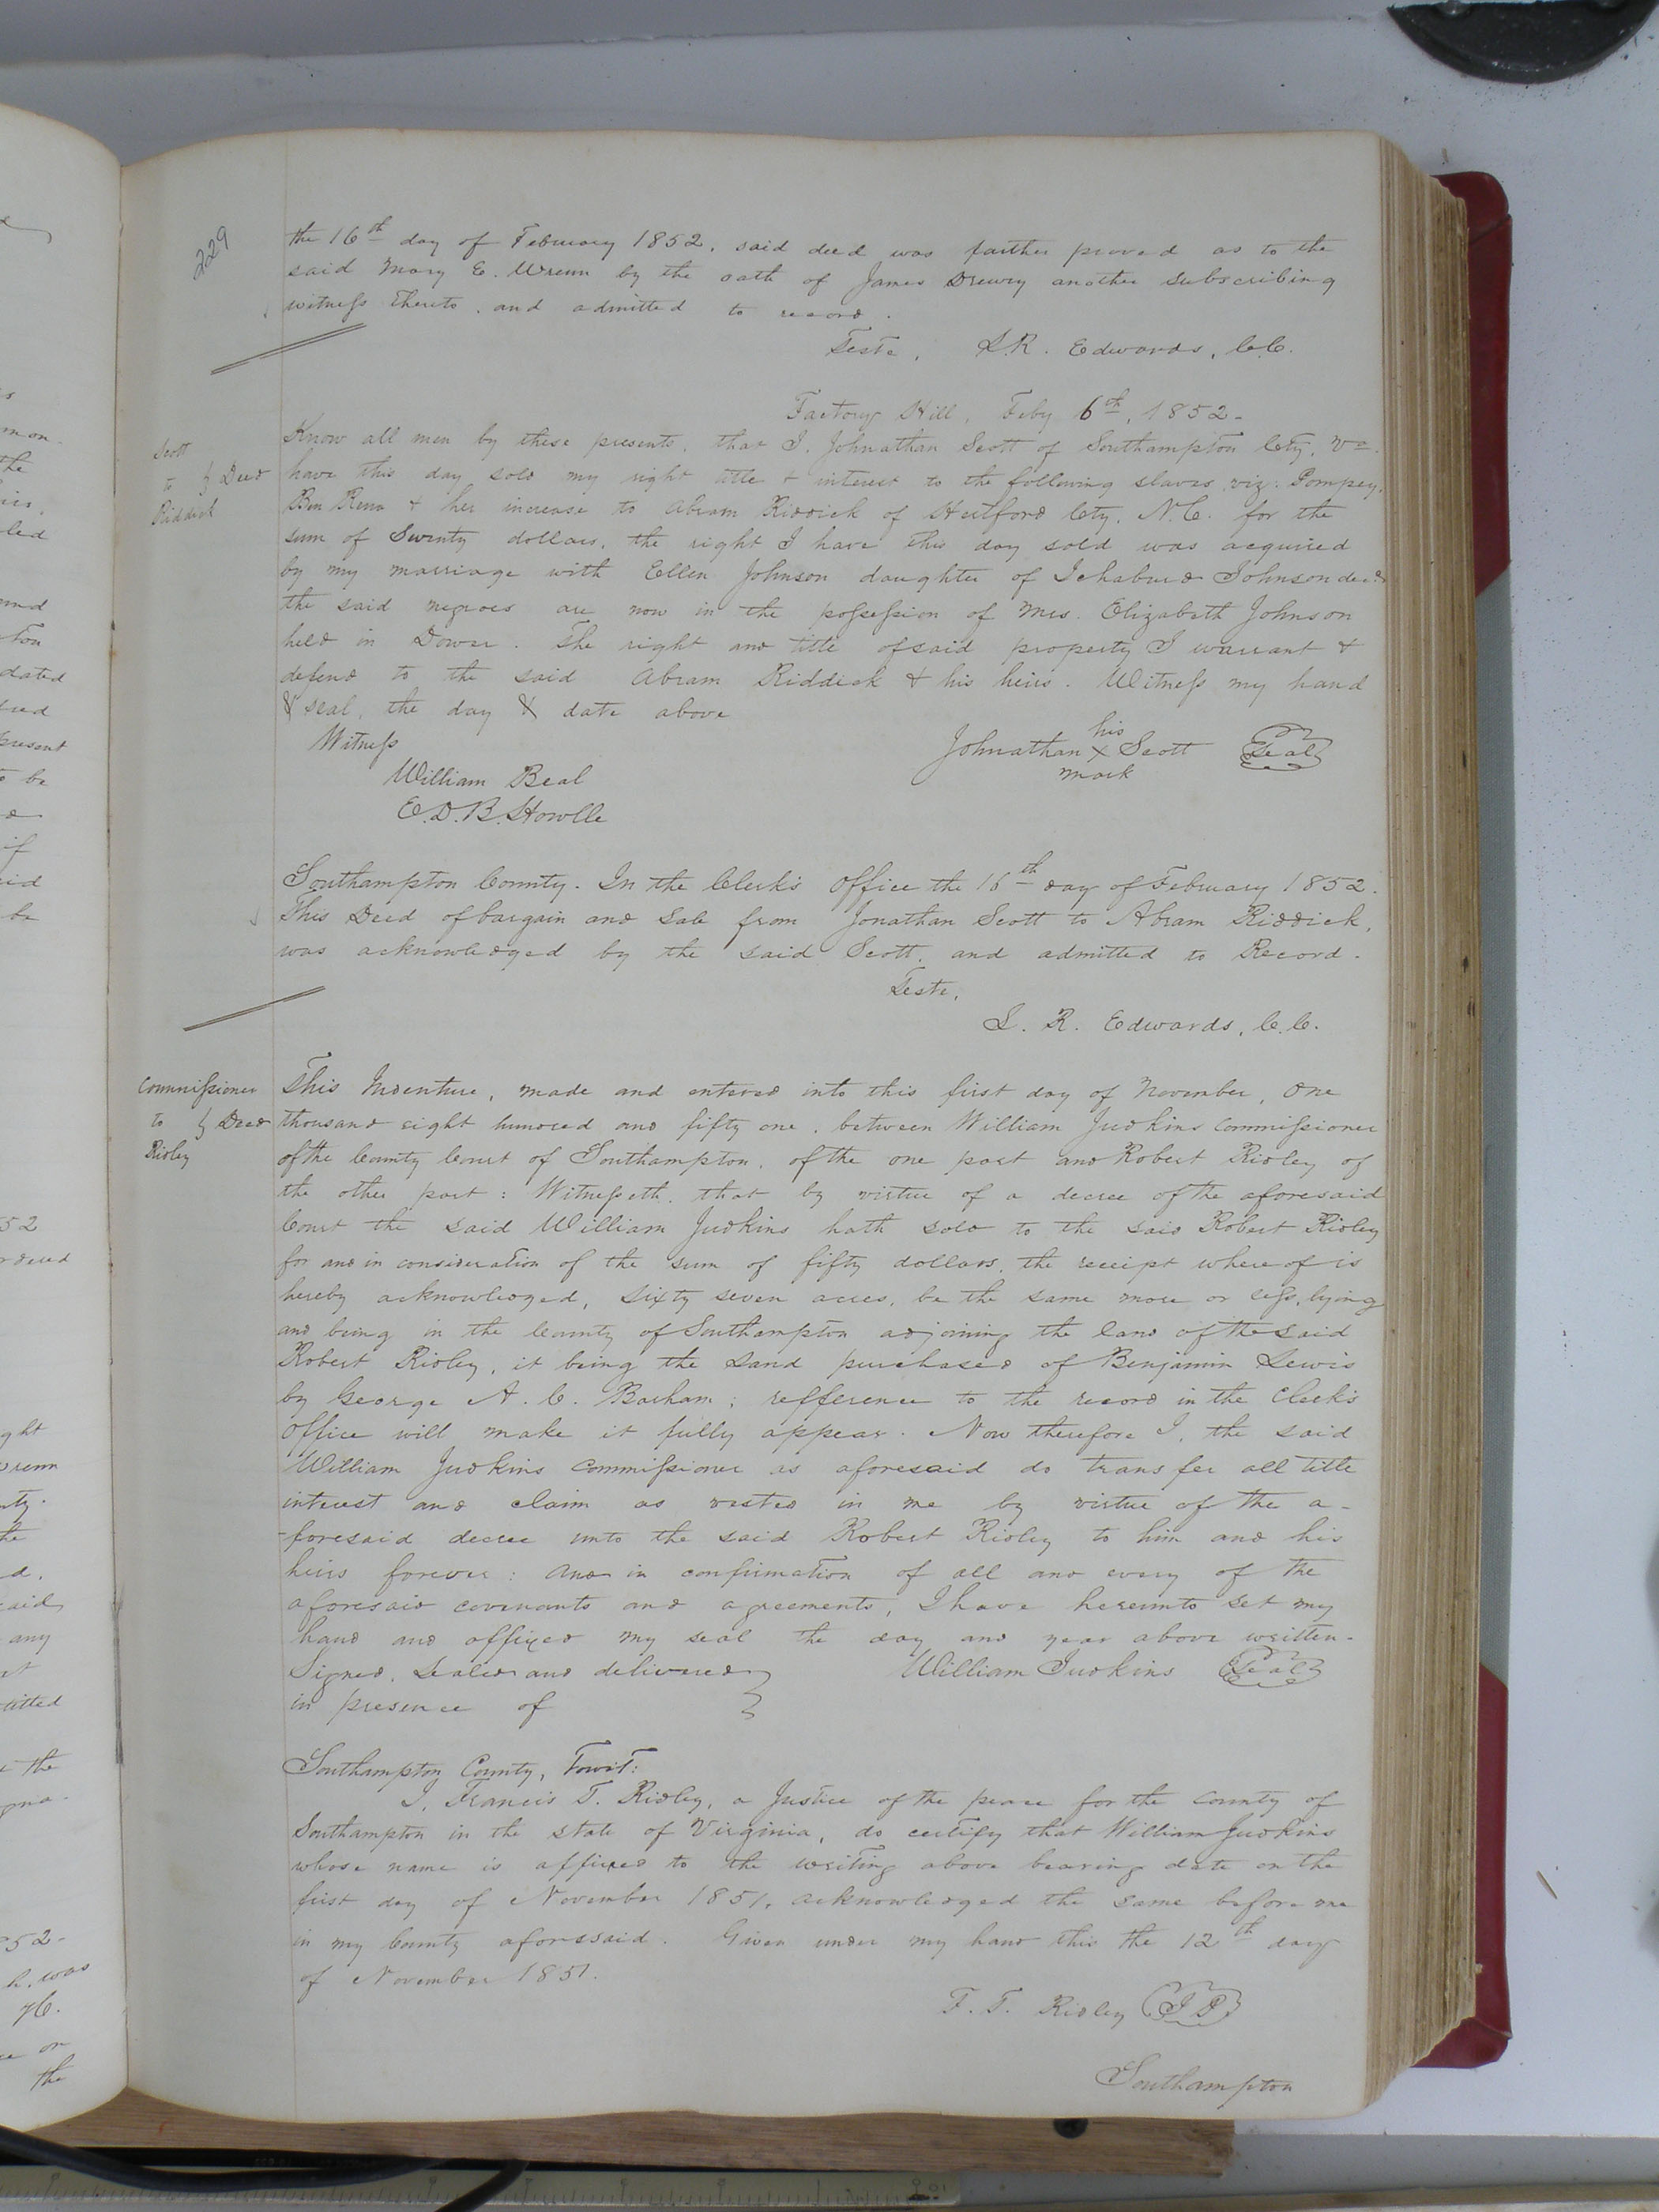 229
the 16th day of February 1852, said deed was farther proved as to the
said Mary E. Wrenn by the oath of James Drewry another subscribing
witness thereto, and admitted to record.
Teste, L.R. Edwards, C.C.
Factory Hill, Feby 6th, 1852-
Scott
to } Deed
Riddick
Know all men by these presents, that I, Johnathan Scott of Southampton Cty, Va.
have this day sold my right title & interest to the following slaves, viz: Pompey,
Ben Rena & her increase to Abram Riddick of Hertford Cty. N.C. for the
sum of Twenty dollars, the right I have this day sold was acquired
by my marriage with Ellen Johnson daughter of Ichaburd Johnson decd
the said negroes are now in the possession of Mrs. Elizabeth Johnson
held in Dower. The right and title of said property I warrant &
defend to the said Abram Riddick & his heirs. Witness my hand
& seal, the day & date above
Witness
William Beal
E.D.B. Howlle
his
Johnathan x Scott Seal
mark
Southampton County. In the Clerk's Office the 16th day of February 1852.
This Deed of bargain and Sale from Jonathan Scott to Abram Riddick,
was acknowledged by the said Scott, and admitted to Record.
Teste,
L. R. Edwards, C.C.
Commissioner
to } Deed
Ridley
This Indenture, made and entered into this first day of November, One
thousand eight hundred and fifty one, between William Judkins Commissioner
of the County Court of Southampton, of the one part and Robert Ridley of
the other part: Witnesseth, that by virtue of a decree of the aforesaid
Court the said William Judkins hath sold to the said Robert Ridley
for and in consideration of the sum of fifty dollars, the receipt where of is
hereby acknowledged, Sixty seven acres, be the same more or less, lying
and being in the County of Southampton adjoining the land of the said
Robert Ridley, it being the Land purchased of Benjamin Lewis
by George A. C. Barham; refference to the record in the Clerk's
office will make it fully appear. Now therefore I, the said
William Judkins Commissioner as aforesaid do transfer all title
interest and claim as vested in me by virtue of the a-
-foresaid decree unto the said Robert Ridley to him and his
heirs forever: And in confirmation of all and every of the
aforesaid covenants and agreements, I have hereunto set my
hand and affixed my seal the day and year above written-
Signed, Sealed and delivered }
William Judkins Seal
in presence of }
Southampton County, Towit:
I, Francis T. Ridley, a Justice of the peace for the County of
Southampton in the state of Virginia, do certify that William Judkins
whose name is affixed to the writing above bearing date on the
first day of November 1851, acknowledged the same before me
in my County aforesaid. Given under my hand this the 12th day
of November 1851.
F. T. Ridley J P
Southampton